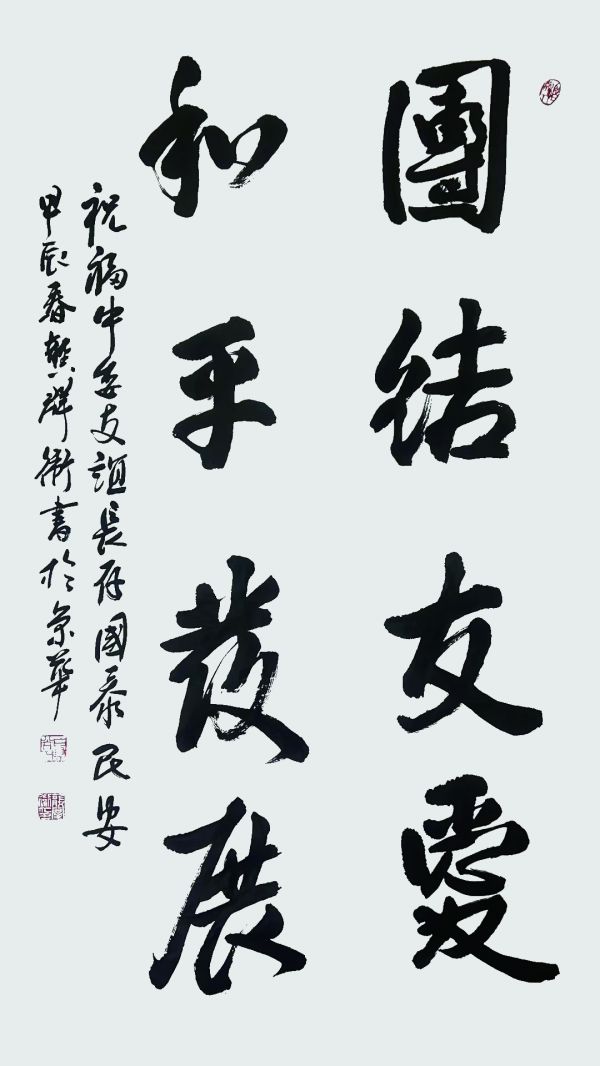 團結友愛
和平發展
祝福中委友誼長存國泰民安
甲辰春書於京華